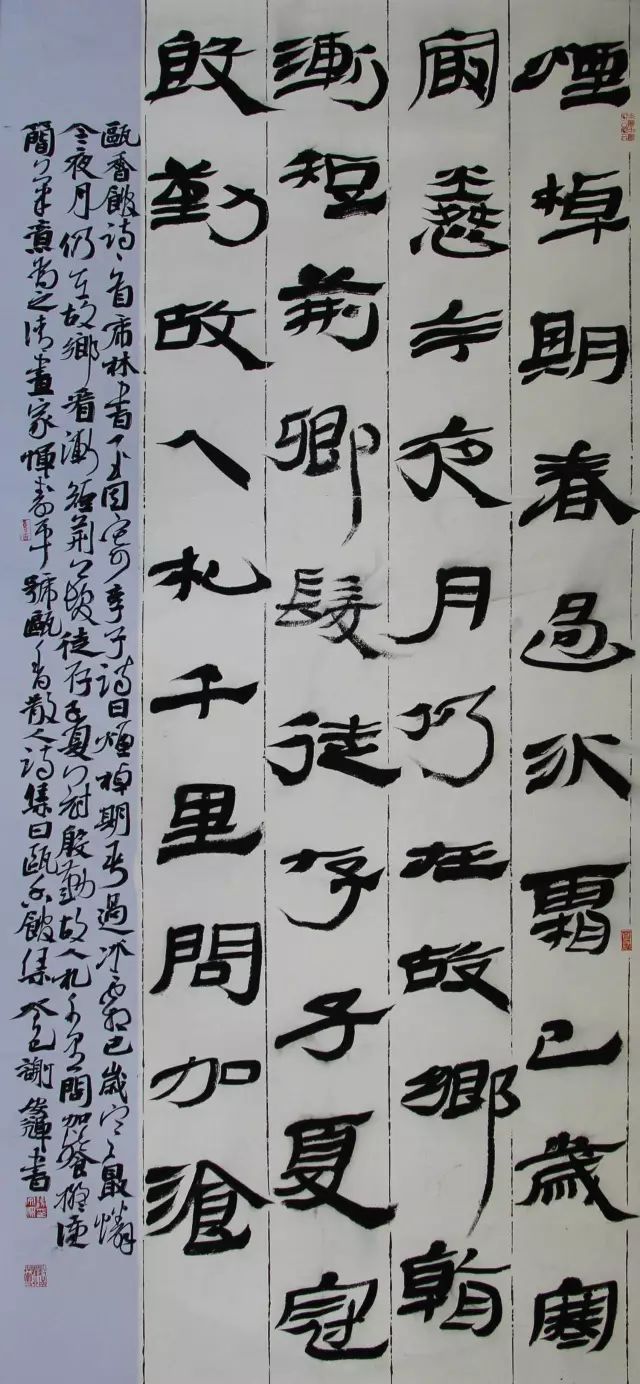 煙棹期春過冰霜已歲寒
冣憐今夜月仍在故鄉看
漸短荊卿髮徒存子夏冠
殷勤故人札千里問加湌
甌香館詩一首 詩曰煙棹期春過冰霜已歲寒最憐
今夜月仍在故鄉看漸短荊 髮徒存子夏 冠殷勤故人札千里問加餐擬漢
簡 意為之清畫家惲壽平號甌香散人詩集曰甌香館集癸巳謝 輝書